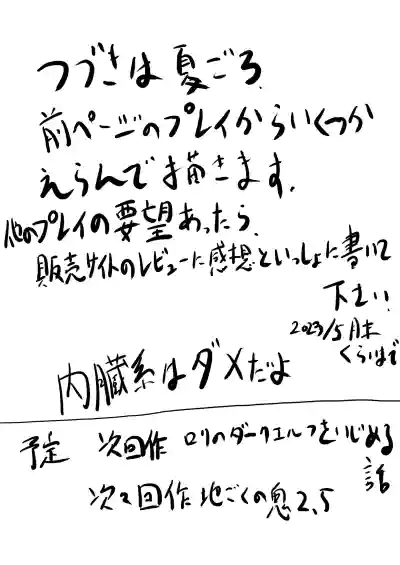 つづきは夏ごろ
前ページのプレイからいくつか
えらんで描きます.
他のプレイの要望あったら、
販売サイトのレビューに感想といっしょに書いて
下さい!
2023/5月末
くらいまで
内臓系はダメだよ
予定 次回作 ロリのダークエルフをいじめる
話
次々回作 地ごくの息2.5